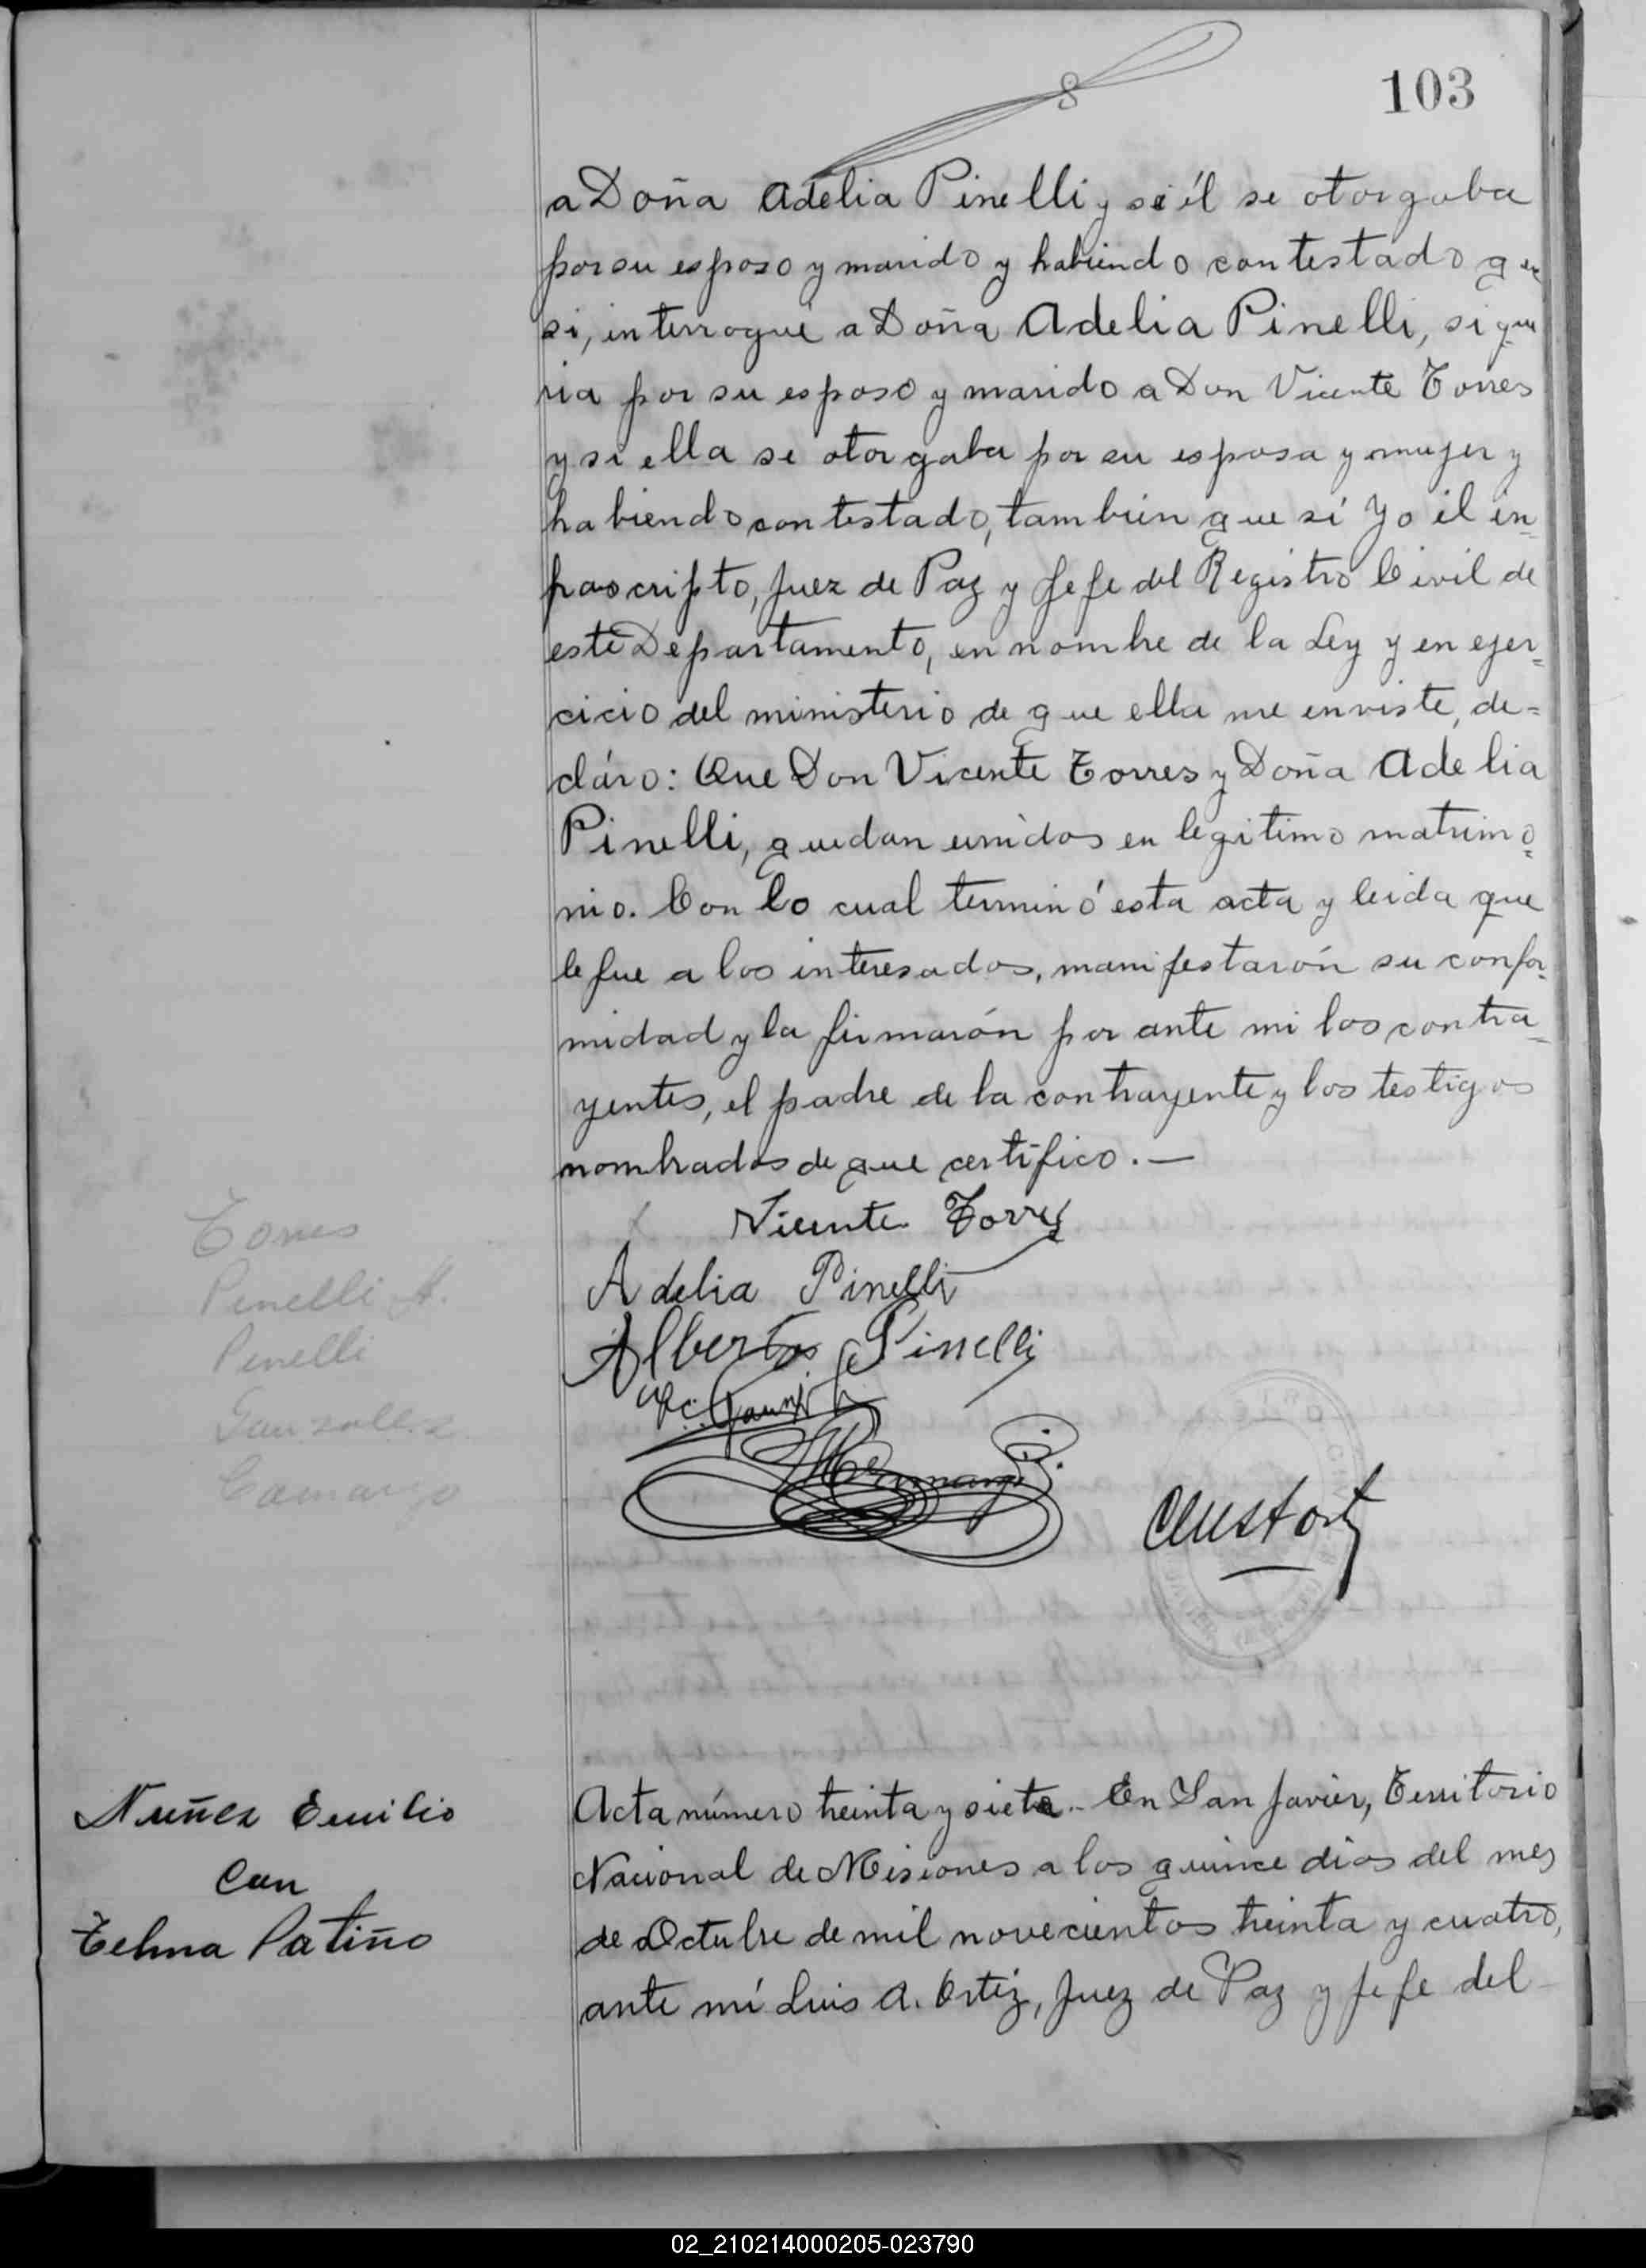 103
a Doña Adelia Pinelli y si él se otorgaba
por su esposo y marido y habiendo contestado que
si, interrogué a Doña Adelia Pinelli, si que
ria por su esposo y marido a Don Vicente Torres
y si ella se otorgaba por su esposa y mujer y
habiendo contestado, tambien que sí Yo el in=
frascripto, Juez de Paz y Jefe del Registro Civil de
este Departamento, en nombre de la Ley y en ejer=
cicio del ministerio de que ella me enviste, de=
cláro: Que Don Vicente Torres y Doña Adelia
Pinelli, quedan unidos en legitimo matrimo=
nio. Con lo cual terminó esta acta y leida que
le fue a los interesados, manifestarón su confor=
midad y la firmarón por ante mi los contra=
yentes, el padre de la contrayente y los testigos
nombrados de que certifico.—
Vicente Torres
Adelia Pinelli
Alberto Pinelli
Torres
Pinelli A.
Pinelli
Gonzalez
Camargo
Nuñez Emilio
Con
Telma Patiño
Acta número treinta y siete.- En San Javier, Territorio
Nacional de Misiones a los quince dias del mes
de Octubre de mil novecientos treinta y cuatro,
ante mí Luis A. Ortiz, Juez de Paz y Jefe del
02_210214000205-023790